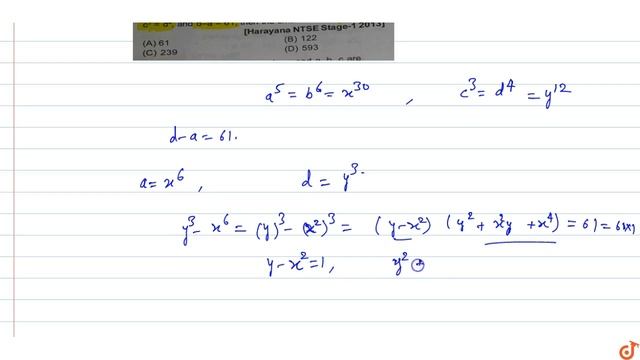 c³ = d⁴, and d–a = 61, then the
[Harayana NTSE Stage-1 2013]
(A) 61 (B) 122
(C) 239 (D) 593
a⁵ = b⁶ = x³⁰ , c³ = d⁴ = y¹²
d-a = 61.
a = x⁶ , d = y³.
y³ - x⁶ = (y)³ - (x²)³ = (y-x²) (y² + x²y + x⁴) = 61 = 61x1
y - x² = 1, y²